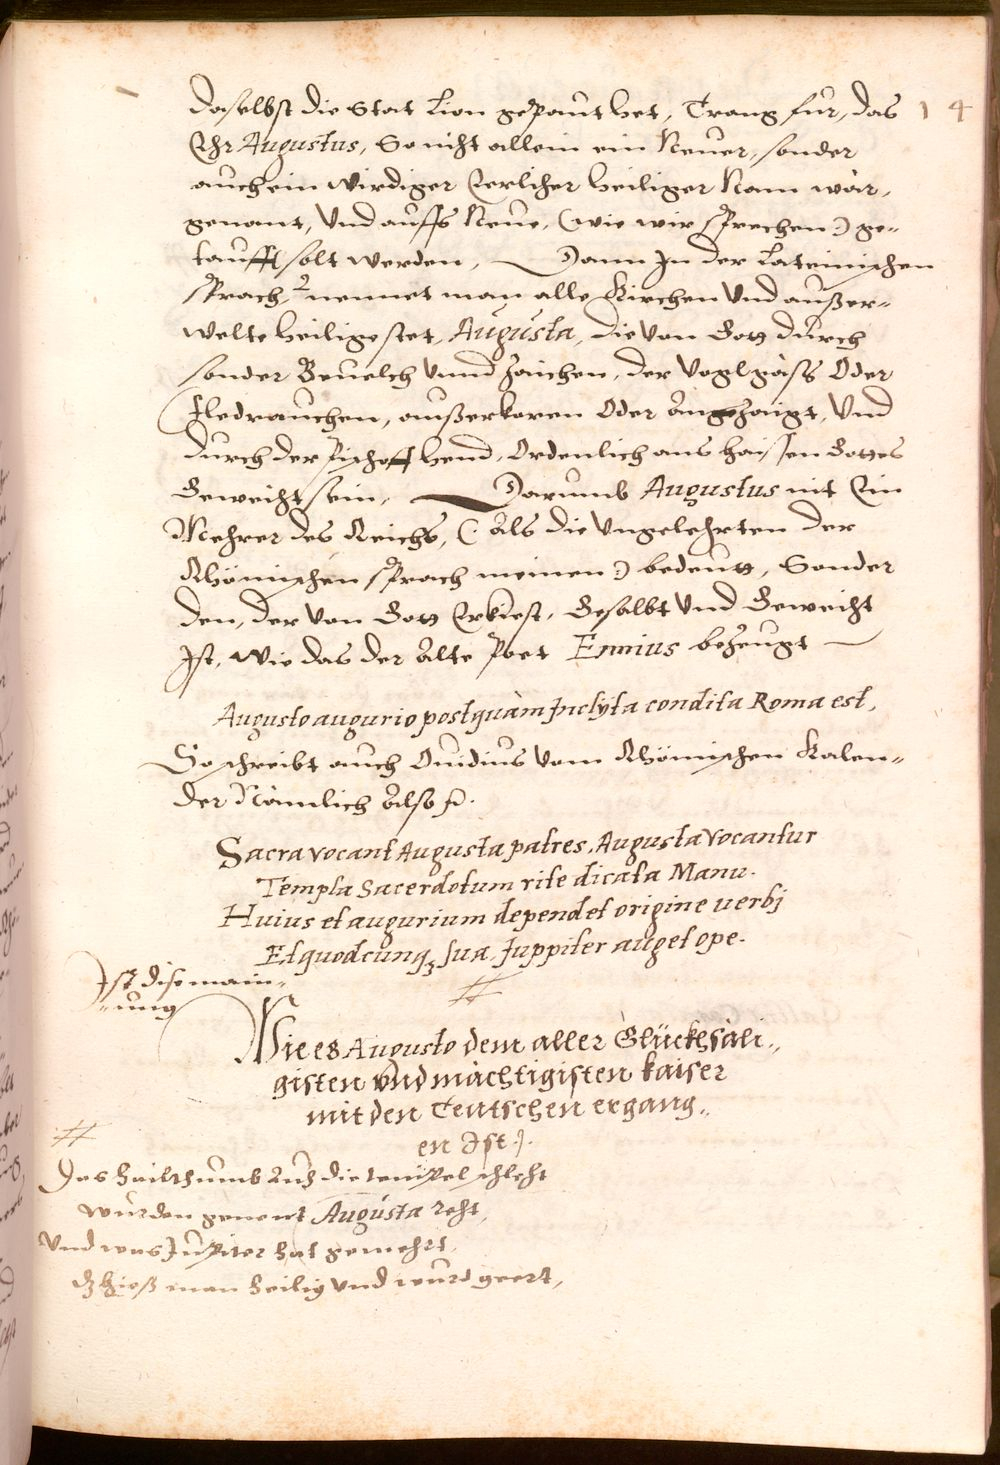 daselbst die Stat Lion gepaut het, Trang fur, das 14
Ehr Augustus, So nicht allein ein Neuer, sonder
auch ein wirdiger Eerlicher heiliger Nam wär,
genant, Und auffs Neue, (wie wir sprechen:) ge-
taufft solt werden, Dann In der Lateinischen
sprach, nennet man alle Kirchen Und außer-
welte heilige stet, Augusta, die von Gott durch
sonder Beuelch Unnd Zaichen, der Voglgäss Oder
fledrauchen, außerkoren Oder angezaigt, Und
durch der Pischoff hend, Ordenlich aus haissen Gottes
Geweicht sein, Darumb Augustus nit Ein
Mehrer des Reichs, (Als die Ungelehrten der
Rhömischen sprach meinen:) bedeutt, Sonder
den, der von Gott Erkiest, Gesalbt Und Geweicht
Ist, wie das der Alte Poet Ennius bezeugt
Augusto augurio postquàm Inclyta condita Roma est,
So schreibt auch Ouidius vom Rhömischen Kalen-
der Nämlich also
Sacra vocant Augusta patres, Augusta vocantur
Templa Sacerdotum rite dicata Manu.
Huius et augurium dependet origine uerbj
Et quodcunq3 sua Juppiter auget ope.
Ist dise main-
-ung
#
Wie es Augusto dem aller Glückhsäli-
gisten vnd mächtigisten kaiser
mit den Teutschen ergang-
en Ist.
#
Das hailthumb Auch die tempel schlecht
wurden genent Augusta recht,
Und was Jupiter hat gemehrt
dz hieß man heilig Und wurd geert,